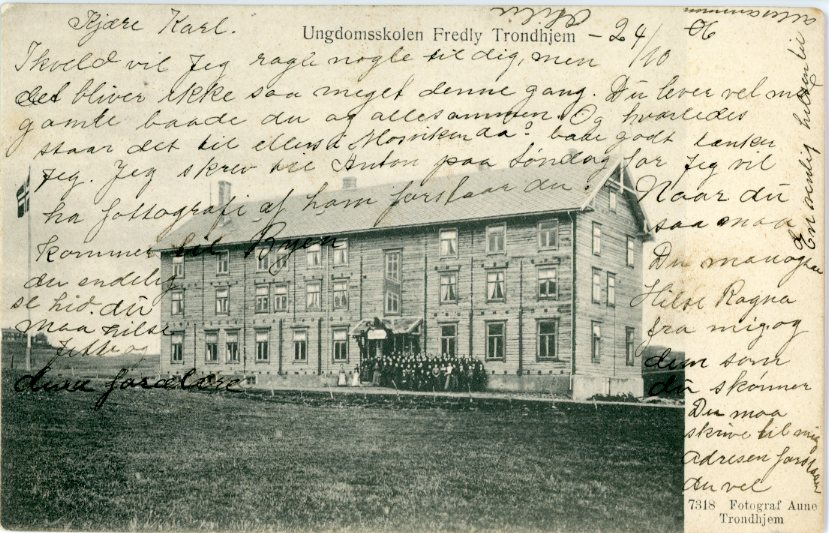 Kjære Karl.
Ungdomsskolen Fredly Trondhjem - 24/10 06
Ikveld vil Jeg ragle nogle til dig, men
det bliver ikke saa meget denne gang. Du lever vel med
gamle baade du og allesammen. Og hvorledes
staar det til ellers i Mosviken da? bare godt tænker
Jeg. Jeg skrev til Anton paa Søndag for Jeg vil
ha fottografi af ham forstaar du. Naar du
kommer til Ryen saa maa
du endelig Du maa ogsaa
se hid. du Hilse Ragna
maa hilse fra mig og
dem som
dine forældre du skønner
Du maa
skrive til mig
adresen forstaar
du vel
En venlig hilsen til
allesammen
7318 Fotograf Aune
Trondhjem